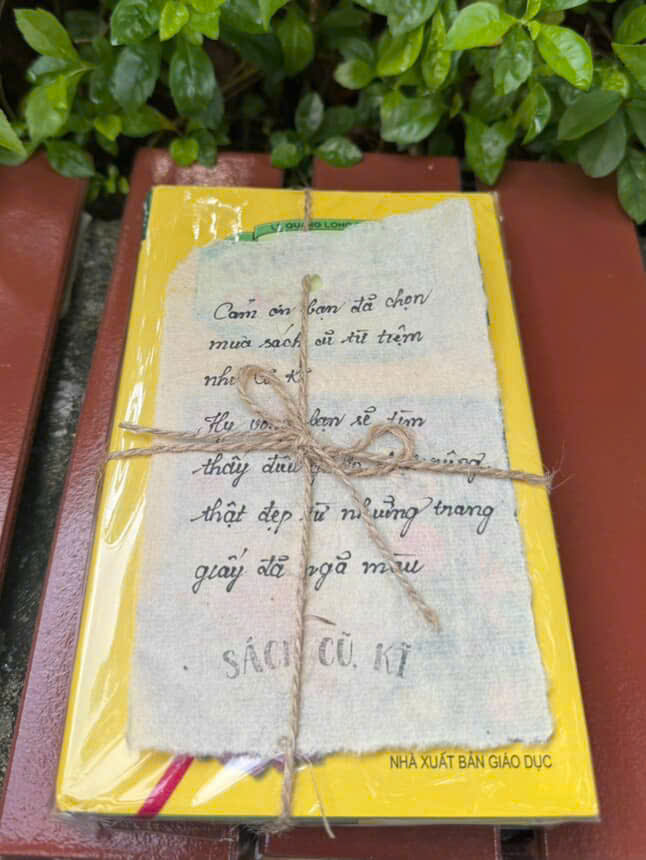 QUANG LONG
Cảm ơn bạn đã chọn
mua sách cũ từ tiệm
Cũ Kĩ
Hy vọng bạn sẽ tìm
thấy
thật đẹp từ những trang
giấy đã ngả màu
SÁCH CŨ KĨ
NHÀ XUẤT BẢN GIÁO DỤC